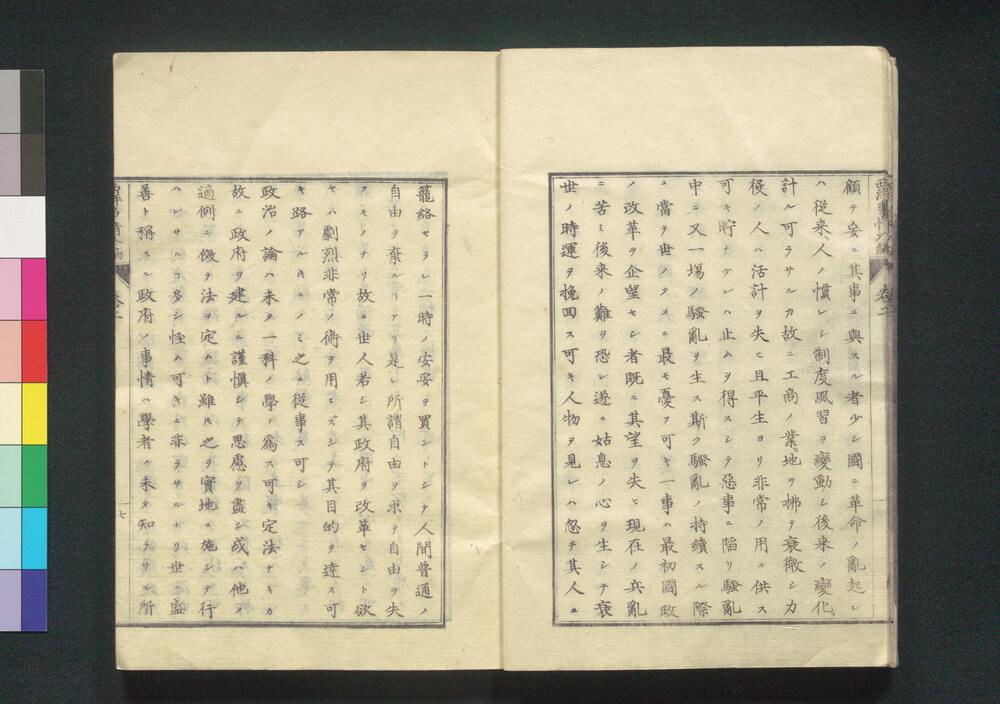 西洋事情外編 卷二
顧テ妄ニ其事ニ與スル者少シ國ニ革命ノ亂起レ
ハ従来人ノ慣レシ制度風習ヲ變動シ後来ノ變化
計ル可ラサルカ故ニ工商ノ業地ヲ拂テ衰微シカ
役ノ人ハ活計ヲ失ヒ且平生ヨリ非常ノ用ニ供ス
可キ貯ナケレハ止ムヲ得スシテ惡事ニ陷リ騒亂
中ニ又一場ノ騒亂ヲ生ス斯ク騒亂ノ持續スル際
ニ當テ世ノタメニ最モ憂フ可キ一事ハ最初國政
ノ改革ヲ企望セシ者既ニ其望ヲ失ヒ現在ノ兵亂
ニ苦ミ後来ノ難ヲ恐レ遂ニ姑息ノ心ヲ生シテ衰
世ノ時運ヲ挽回ス可キ人物ヲ見レハ忽チ其人ニ
籠絡セラレ一時ノ安妥ヲ買ントシテ人間普通ノ
自由ヲ棄ルヿアリ是レ所謂自由ヲ求テ自由ヲ失
フモノナリ故ニ世人若シ其政府ヲ改革セント欲
セハ劇烈非常ノ術ヲ用ヒズシテ其目的ヲ達ス可
キ路アルキニノミ之ニ従事ス可シ
政治ノ論ハ未タ一科ノ學ト爲ス可キ定法ナキカ
故ニ政府ヲ建ルニ謹愼シテ思慮ヲ盡シ或ハ他ノ
適例ニ傚テ法ヲ定ムト雖𪜈之ヲ實地ニ施シテ行
ハレサルヿ多シ怪ム可キニ非ラサルナリ世ニ盛
善ト稱スル政府ノ事情ハ學者ノ未タ知ラサル所
卷二
七